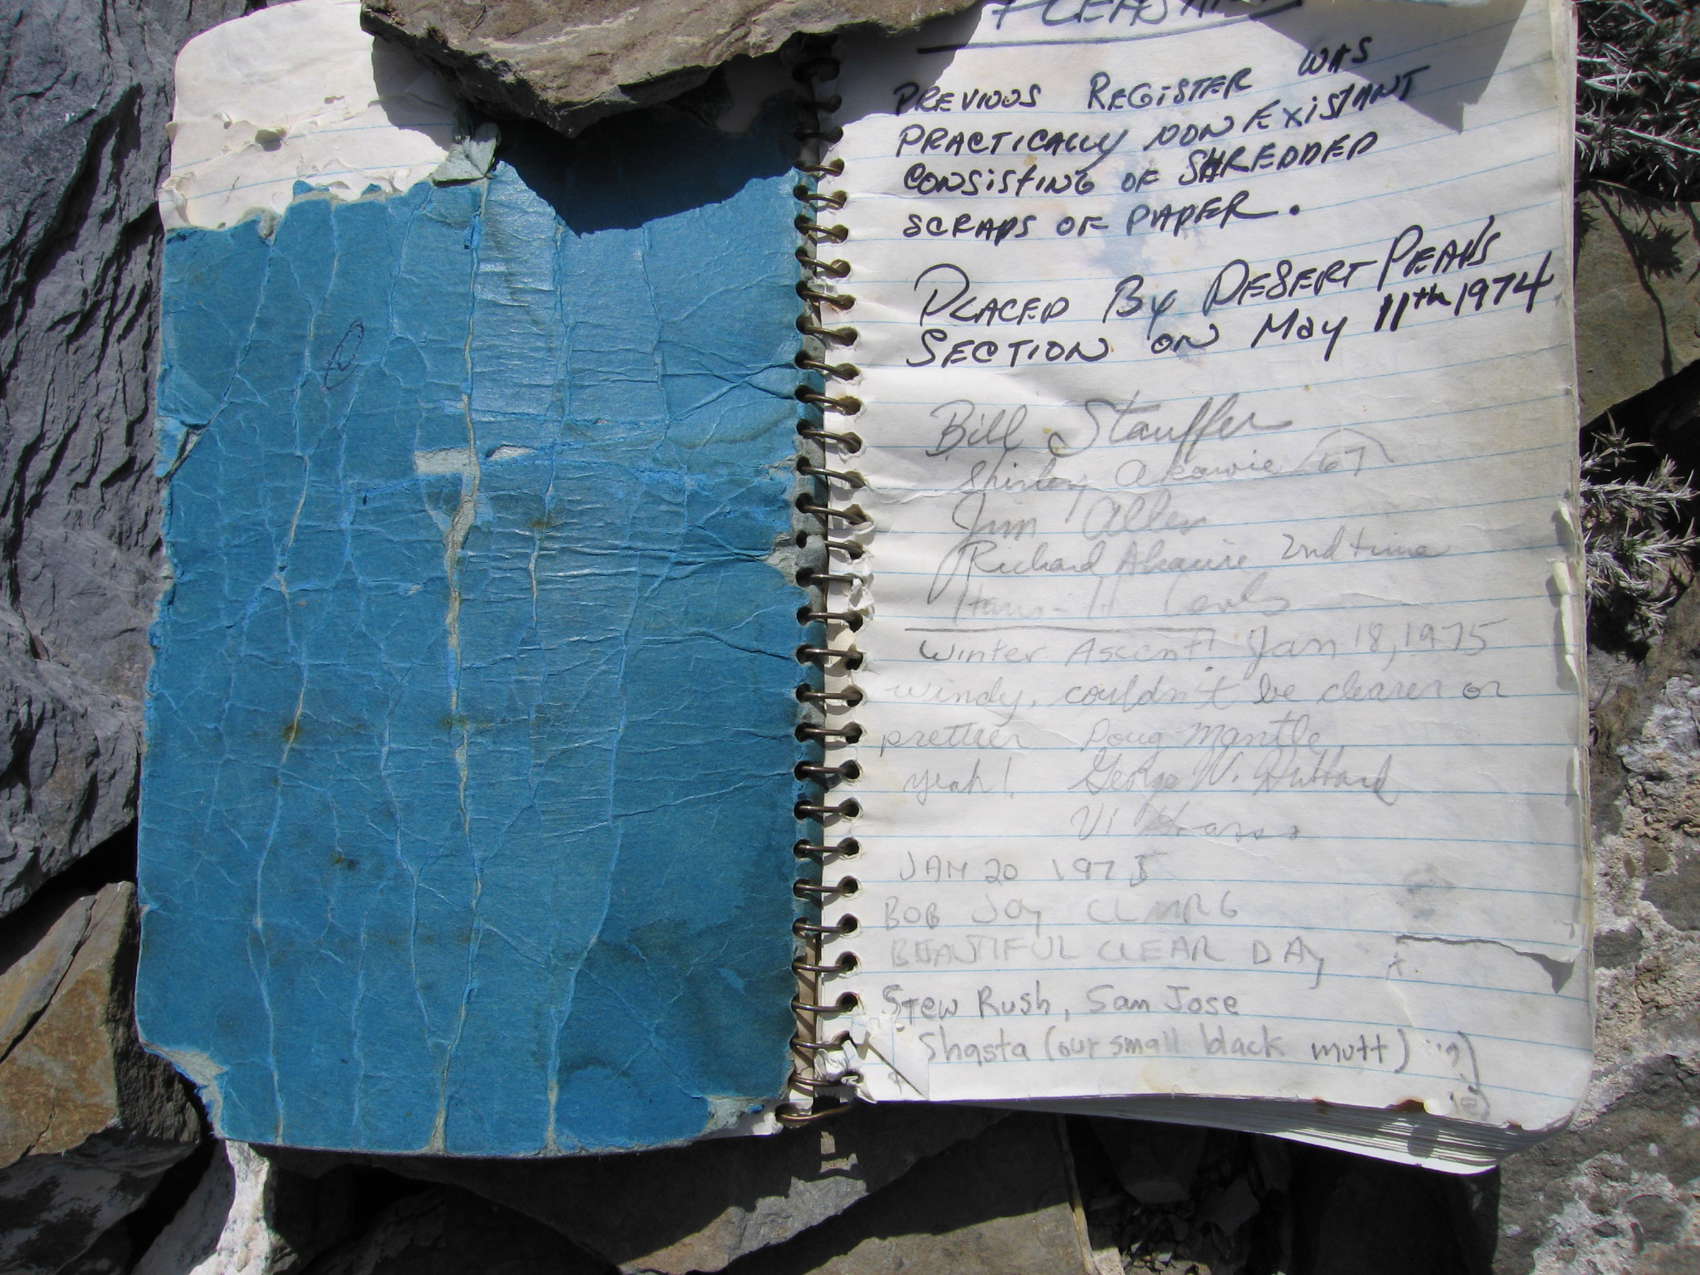 PLEASANT
PREVIOUS REGISTER WAS
PRACTICALLY NON EXISTANT
CONSISTING OF SHREDDED
SCRAPS OF PAPER.
PLACED By DESERT PEAKS
SECTION ON MAy 11th 1974
Bill Stauffer
Shirley Akawie 67
Jim Allen
Richard Akawie 2nd time
Winter Ascent! Jan 18, 1975
windy, couldn't be clearer or
prettier Doug Mantle
yeah! George W. Hubbard
Vi
JAN 20 1975
BOB JOY
BEAUTIFUL CLEAR DAy
Stew Rush, San Jose
Shasta (our small black mutt)